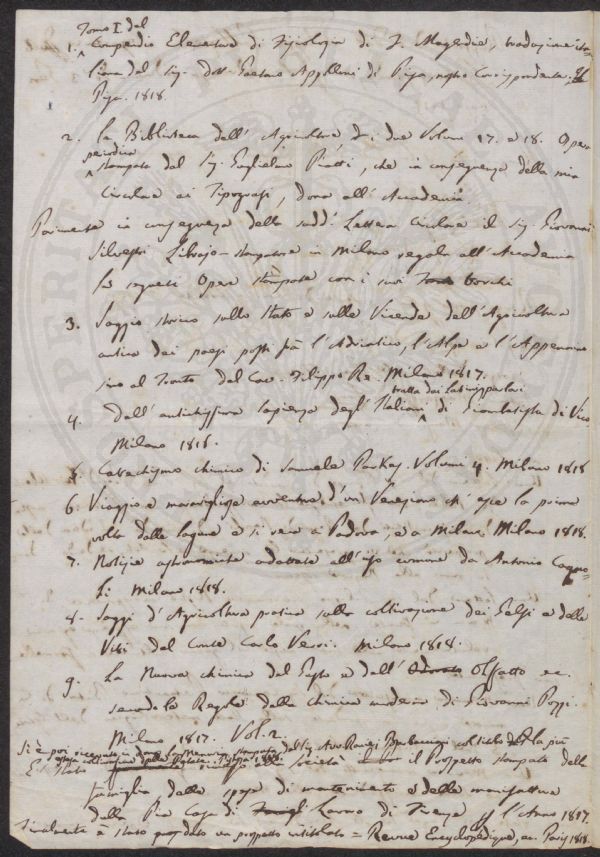 Tomo I. del
1. Compendio Elementare di Fisiologia di F. Magendie, traduzione ita-
liana del Sig. Dott. Gaetano Appolloni di Pisa, nostro Corrispondente.
Pisa. 1818.
2. La Biblioteca dell' Agricoltore due Volumi 17. e 18. Opera
periodica
stampata dal Sig. Guglielmo Piatti, che in conseguenza della mia
Circolare ai Tipografi, dona all' Accademia
Parimente in conseguenza della sudd. Lettera Circolare il Sig. Giovanni
Silvestri Librajo-stampatore in Milano regala all' Accademia
le seguenti Opere stampate con i suoi torchi
3. Saggio storico sullo stato e sulle Vicende dell' Agricoltura
antica dei paesi posti fra l' Adriatico, l' Alpe e l' Appennino
sino al Tronto del Cav. Filippo Re. Milano 1817.
tratta dai latini parlari
4. Dell' antichissima sapienza degl' Italiani di Giambatista di Vico
Milano 1816.
5. Catechismo chimico di Samuele Parkes Volumi 4. Milano 1818
6. Viaggio e maravigliose avventure d' un Veneziano ch' esce la prima
volta dalle lagune e si reca a Padova, e a Milano. Milano 1818.
7. Notizie astronomiche adattate all' uso comune da Antonio Cagno-
li: Milano 1818.
8. Saggi d' Agricoltura pratica sulla coltivazione dei Gelsi e delle
Viti del Conte Carlo Verri. Milano 1818.
9. La Nuova chimica del Gusto e dell' Odorato Olfatto ec.
secondo le Regole della chimica moderna di Giovanni Pozzi.
Milano 1817. Vol. 2.
Si è poi ricevuta in dono la Memoria stampata del Sig. Avv. Ranieri col titolo della più
estesa coltivazione delle Patate. Pistoja
È stato Società il Prospetto stampato della
famiglia delle spese di mantenimento e delle manifatture
della Pia Casa di Lavoro di Firenze l' Anno 1817.
Finalmente è stato un prospetto intitolato = Revue Encyclopedique, ec. Paris 1818.